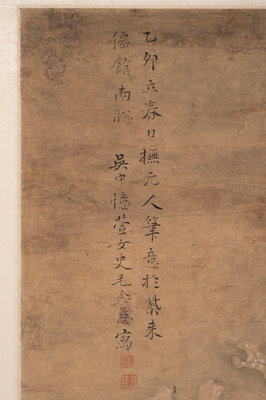 乙卯立春日橅元人筆意於紫來
僊館南牕 吳中憶萱女史毛念慈寫